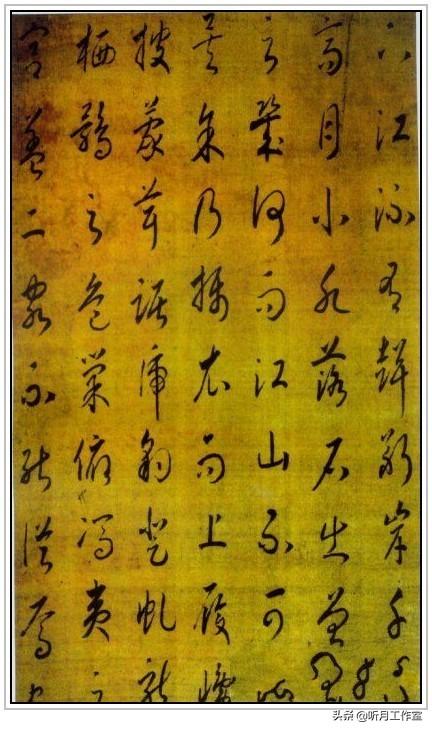 江流有聲斷岸千
高月小水落石出曾
之幾何而江山不可
矣予乃攝衣而上履巉
披蒙茸踞虎豹登虬龍
栖鶻之危巢俯馮夷之
宮蓋二客不能從焉
头条 @听月工作室